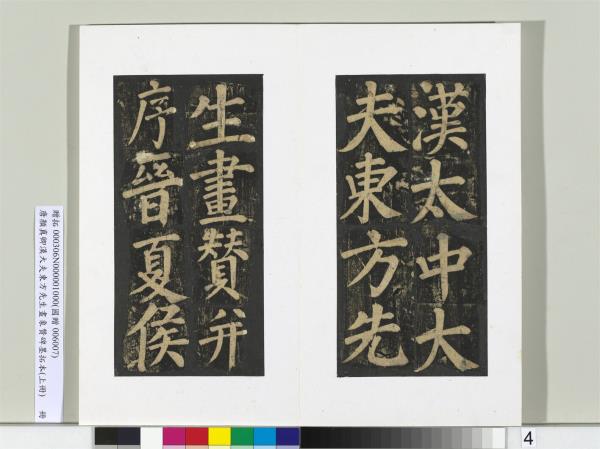 漢太中大
夫東方先
生畫贊并
序晉夏侯
贈拓 000306N000001000(國贈 006007)
唐顏真卿漢大夫東方先生畫象贊碑墨拓本(上冊) 冊
4